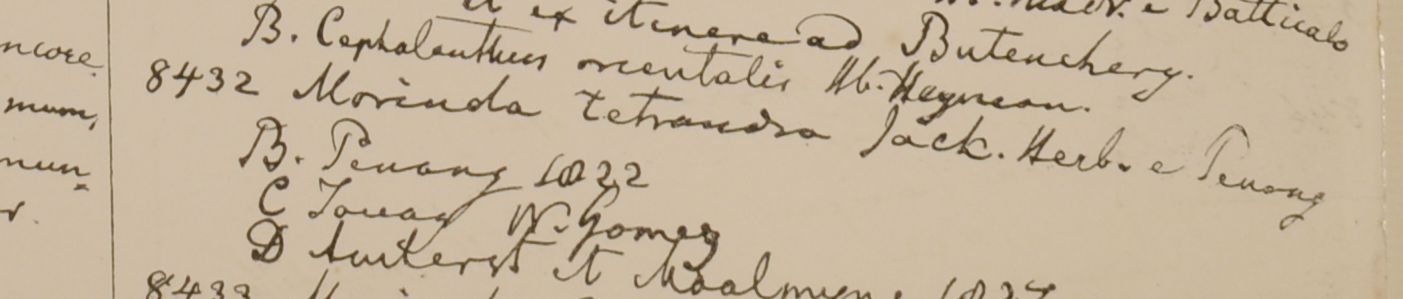 Batticalo
et ex itinere ad Butenchery.
B. Cephalanthus orientalis Hb. Heynean.
8432 Morinda tetrandra Jack. Herb. e Penang
B. Penang 1822
C Tavay W. Gomez
D Amherst et Moalmyne 1827
8433
ncore.
mum,
nun
r.